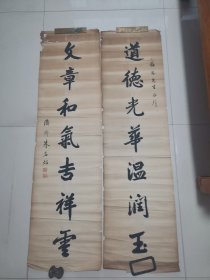 道德光華温潤玉
文章和氣吉祥雲